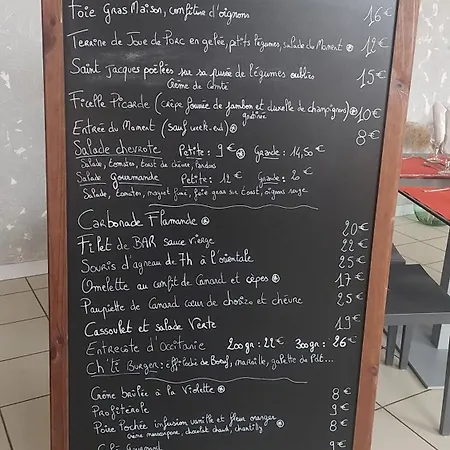 Foie Gras Maison, confiture d'oignons 16€
Terrine de Joue de Porc en gelée, petits légumes, salade du Moment 12€
Saint Jacques poêlées sur sa purée de légumes oubliés 15€
Crème de Comté
Ficelle Picarde (crêpe fourrée de jambon et duxelle de champignons) 10€
gratinée
Entrée du Moment (sauf week.end) 8€
Salade chevrote Petite: 9€ Grande: 14,50€
Salade, tomates, toast de chèvre, lardons
Salade Gourmande Petite: 12€ Grande: 20€
Salade, tomates, magret fumé, foie gras sur toast, oignons rouge
Carbonade Flamande 20€
Filet de BAR sauce vierge 22€
Souris d'agneau de 7h à l'orientale 25€
Omelette au confit de Canard et cèpes 17€
Paupiette de Canard cœur de chorizo et chèvre 25€
Cassoulet et salade Verte 19€
Entrecote d'Occitanie 200gr: 22€ 300gr: 26€
Ch'ti Burger: effiloché de Bœuf, maroille, galette de Pdt...
Crème brûlée à la Violette 8€
Profiterole 9€
Poire Pochée infusion vanille et fleur oranger 8€
Crème mascarpone, chocolat chaud, chantilly
Café Gourmand 9€